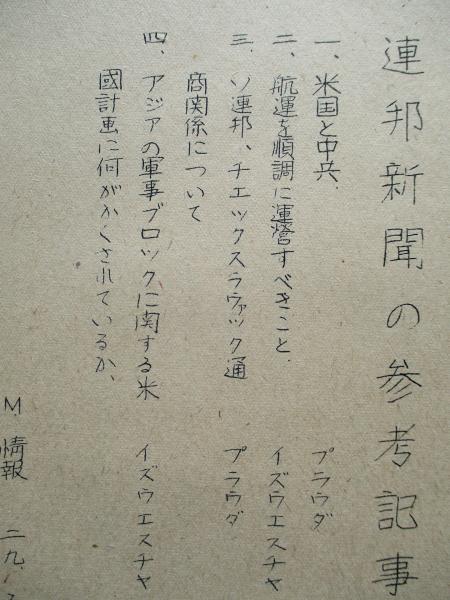 連邦新聞の参考記事
一、米国と中共、 プラウダ
二、航運を順調に運営すべきこと、 イズウエスチヤ
三、ソ連邦、チエックスラヴァック通
商関係について プラウダ
四、アジアの軍事ブロックに関する米
國計画に何がかくされているか、 イズウエスチヤ
M.情報 二九、